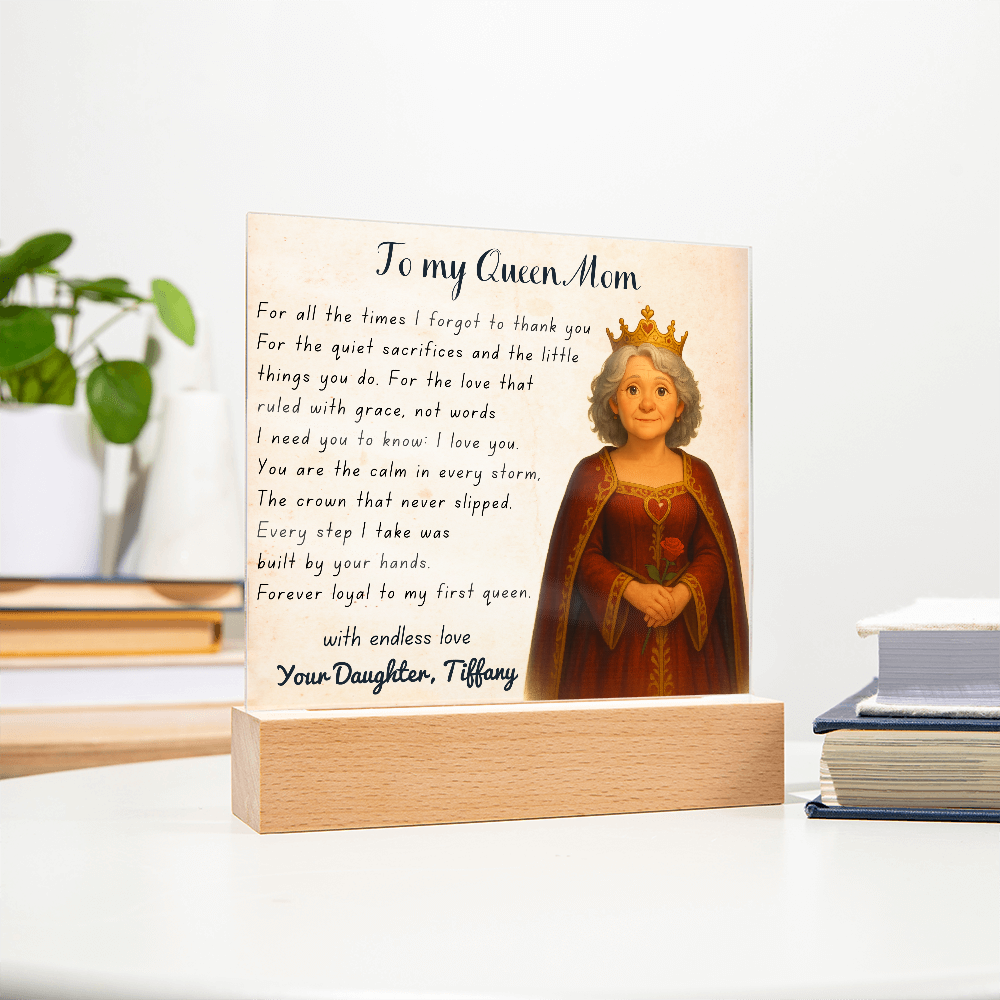 To my Queen Mom
For all the times I forgot to thank you
For the quiet sacrifices and the little
things you do. For the love that
ruled with grace, not words
I need you to know: I love you.
You are the calm in every storm,
The crown that never slipped.
Every step I take was
built by your hands.
Forever loyal to my first queen.
with endless love
Your Daughter, Tiffany